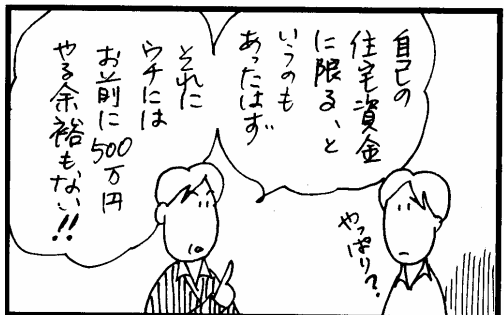 自己の
住宅資金
に限る、と
いうのも
あったはず
それに
ウチには
お前に500万円
やる余裕もない!!
やっぱり?